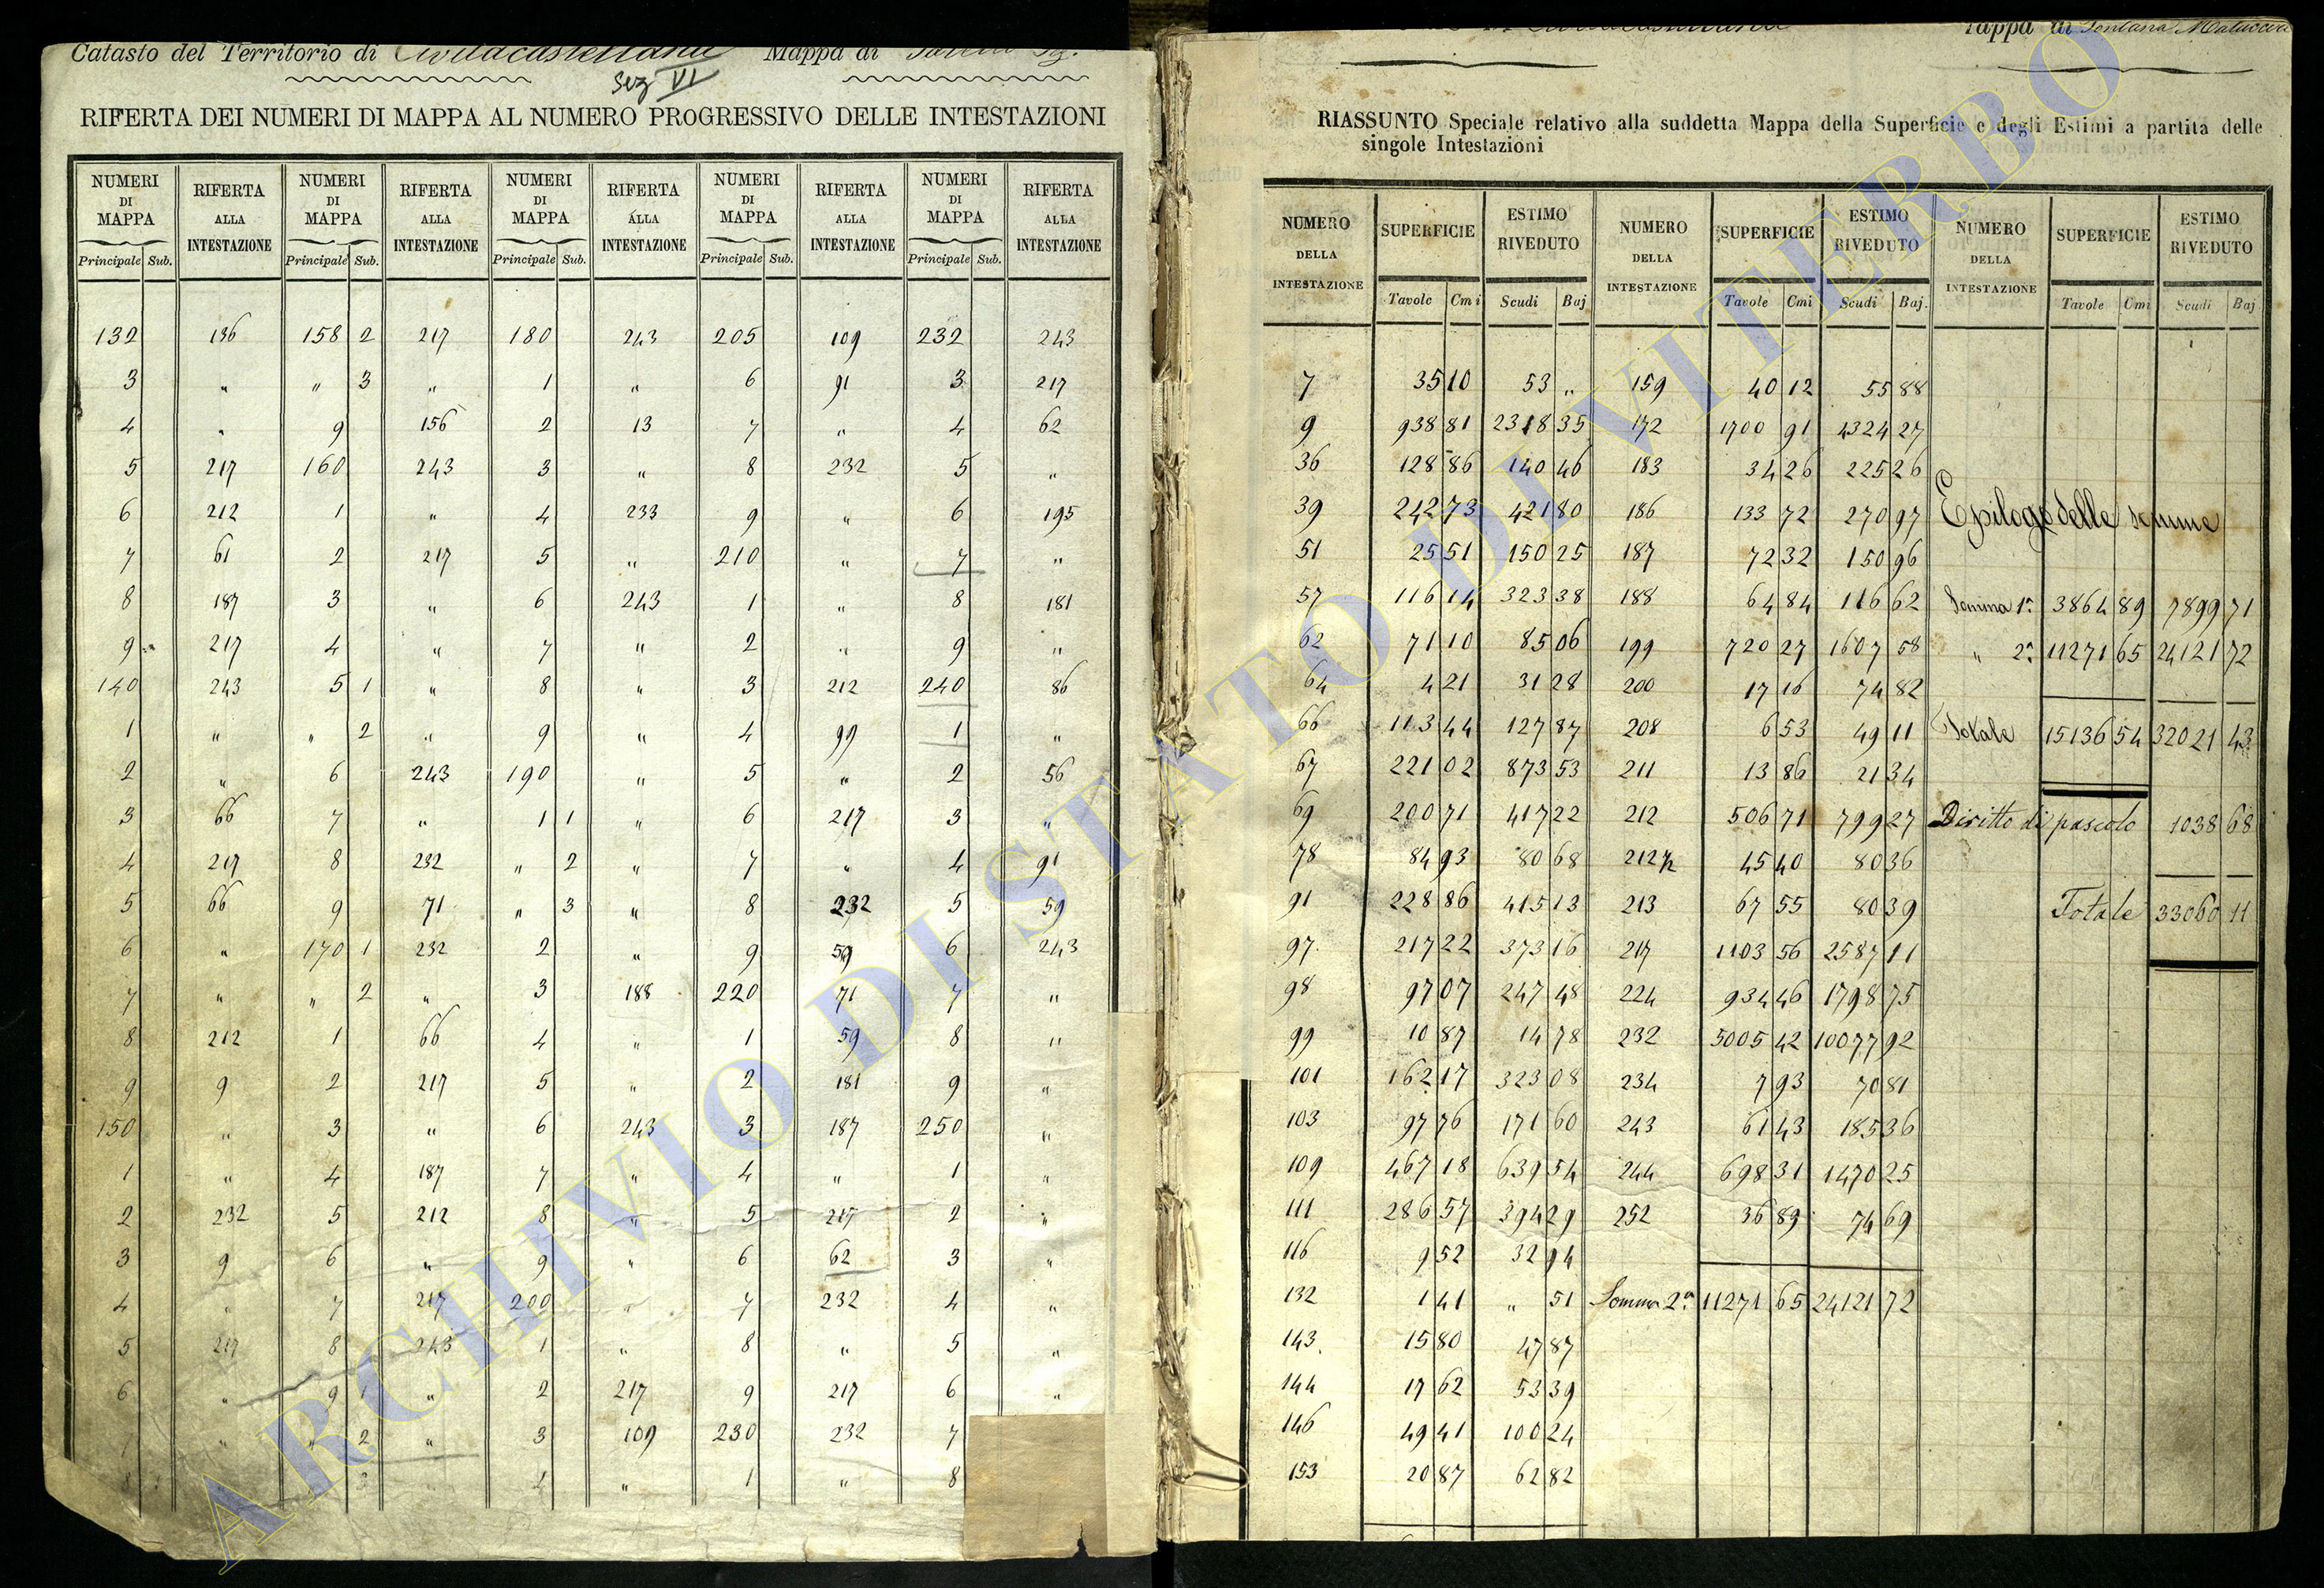 Catasto del Territorio di Civitacastellana Mappa di
Sez VI
RIFERTA DEI NUMERI DI MAPPA AL NUMERO PROGRESSIVO DELLE INTESTAZIONI
NUMERI DI MAPPA RIFERTA ALLA INTESTAZIONE NUMERI DI MAPPA RIFERTA ALLA INTESTAZIONE NUMERI DI MAPPA RIFERTA ALLA INTESTAZIONE NUMERI DI MAPPA RIFERTA ALLA INTESTAZIONE NUMERI DI MAPPA RIFERTA ALLA INTESTAZIONE
Principale Sub. Principale Sub. Principale Sub. Principale Sub. Principale Sub.
132 136 158 2 217 180 243 205 109 232 243
3 " " 3 " 1 " 6 91 3 217
4 " 9 156 2 13 7 " 4 62
5 217 160 243 3 " 8 232 5 "
6 212 1 " 4 233 9 " 6 195
7 61 2 217 5 " 210 " 7 "
8 187 3 " 6 243 1 " 8 181
9 217 4 " 7 " 2 " 9 "
140 243 5 1 " 8 " 3 212 240 86
1 " " 2 " 9 " 4 99 1 "
2 " 6 243 190 " 5 " 2 56
3 66 7 " 1 1 " 6 217 3 "
4 217 8 232 " 2 " 7 " 4 91
5 66 9 71 " 3 " 8 232 5 59
6 " 170 1 232 2 " 9 59 6 243
7 " " 2 " 3 188 220 71 7 "
8 212 1 66 4 " 1 59 8 "
9 9 2 217 5 " 2 181 9 "
150 " 3 " 6 243 3 187 250 "
1 " 4 187 7 " 4 " 1 "
2 232 5 212 8 " 5 217 2 "
3 9 6 " 9 " 6 62 3 "
4 " 7 217 200 " 7 232 4 "
5 217 8 243 1 " 8 " 5 "
6 " 9 1 " 2 217 9 217 6 "
7 " " 2 " 3 109 230 232 7
8 3 " 4 " 1 " 8
Mappa di Fontana Matuccia
RIASSUNTO Speciale relativo alla suddetta Mappa della Superficie e degli Estimi a partita delle
singole Intestazioni
NUMERO DELLA INTESTAZIONE SUPERFICIE ESTIMO RIVEDUTO NUMERO DELLA INTESTAZIONE SUPERFICIE ESTIMO RIVEDUTO NUMERO DELLA INTESTAZIONE SUPERFICIE ESTIMO RIVEDUTO
Tavole Cmi Scudi Baj Tavole Cmi Scudi Baj. Tavole Cmi Scudi Baj
7 35 10 53 " 159 40 12 55 88
9 938 81 2318 35 172 1700 91 4324 27
36 128 86 140 46 183 34 26 225 26
39 242 73 421 80 186 133 72 270 97 Epilogo delle somme
51 25 51 150 25 187 72 32 150 96
57 116 14 323 38 188 64 84 116 62 Somma 1ª 3864 89 7899 71
62 71 10 85 06 199 720 27 1607 58 " 2ª 11271 65 24121 72
64 4 21 31 28 200 17 16 74 82
66 113 44 127 87 208 6 53 49 11 Totale 15136 54 32021 43
67 221 02 873 53 211 13 86 21 34
69 200 71 417 22 212 506 71 799 27 Diritto di pascolo 1038 68
78 84 93 80 68 212½ 45 40 80 36
91 228 86 415 13 213 67 55 80 39 Totale 33060 11
97 217 22 373 16 217 1103 56 2587 11
98 97 07 247 48 224 934 46 1798 75
99 10 87 14 78 232 5005 42 10077 92
101 162 17 323 08 234 7 93 70 81
103 97 76 171 60 243 61 43 185 36
109 467 18 639 54 244 698 31 1470 25
111 286 57 394 29 252 36 89 74 69
116 9 52 32 94
132 1 41 " 51 Somma 2ª 11271 65 24121 72
143 15 80 47 87
144 17 62 53 39
146 49 41 100 24
153 20 87 62 82
ARCHIVIO DI STATO DI VITERBO